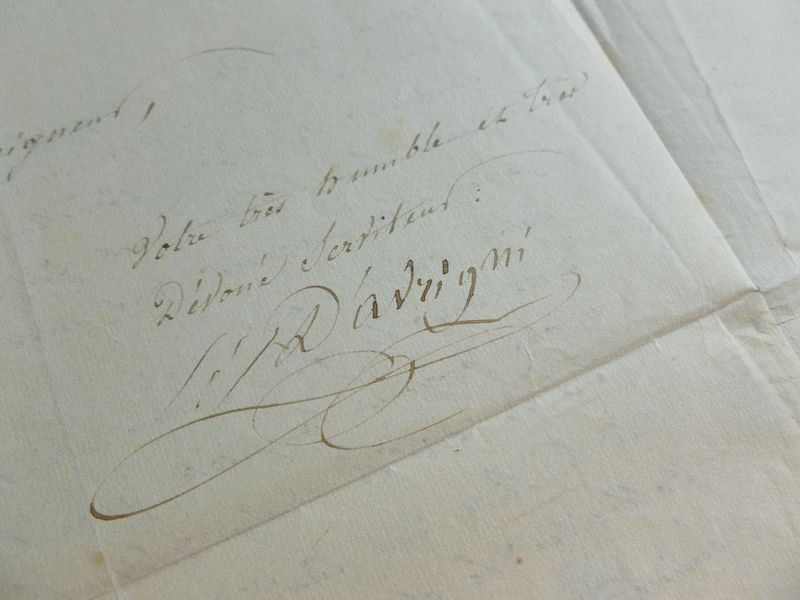 eigneur,
Votre très humble et très
Dévoué Serviteur :
D'avrigni